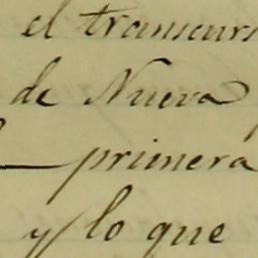 el transcurs
de Nueva
primera
y lo que